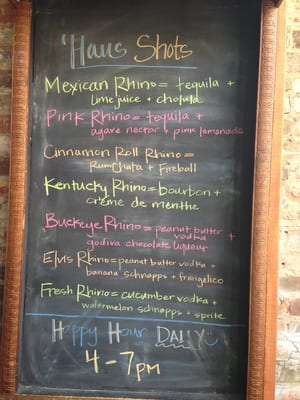 'Haus Shots
Mexican Rhino = tequila +
lime juice + cholula
Pink Rhino = tequila +
agave nectar + pink lemonade
Cinnamon Roll Rhino =
RumChata + Fireball
Kentucky Rhino = bourbon +
créme de menthe
Buckeye Rhino = peanut butter +
vodka
godiva chocolate liqueur
Elvis Rhino = peanut butter vodka +
banana schnapps + frangelico
Fresh Rhino = cucumber vodka +
watermelon schnapps + sprite
Happy Hour DAILY
4-7pm